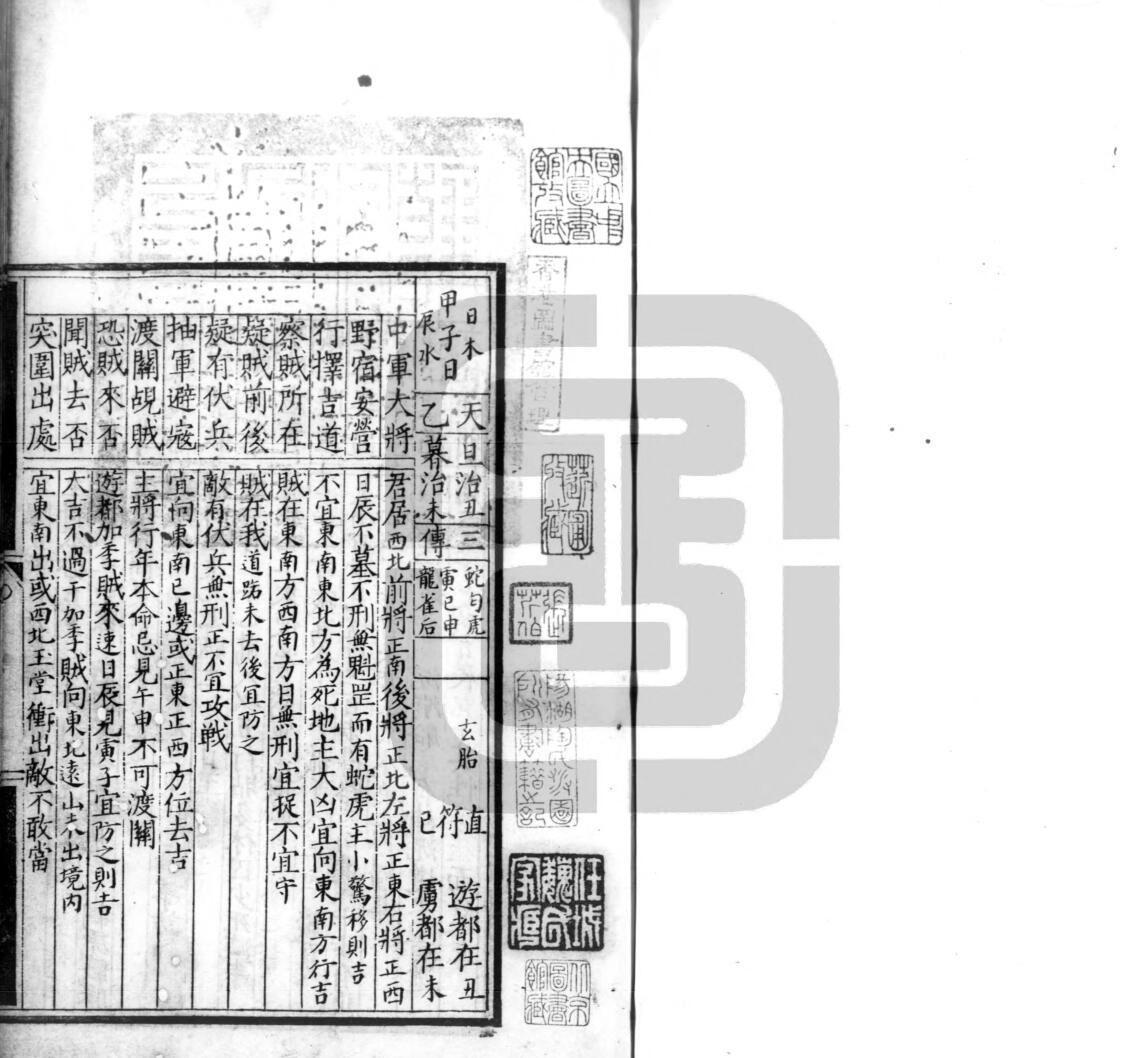 甲子日
日木
辰水
天乙
旦治丑
暮治未
三傳
蛇勾虎
寅巳申
龍雀后
玄胎
直符巳
遊都在丑
虜都在未
中軍大將
君居西北前將正南後將正北左將正東右將正西
野宿安營
日辰不墓不刑無魁罡而有蛇虎主小驚移則吉
行擇吉道
不宜東南東北方為死地主大凶宜向東南方行吉
察賊所在
賊在東南方西南方日無刑宜捉不宜守
疑賊前後
賊在我道路未去後宜防之
疑有伏兵
敵有伏兵無刑正不宜攻戰
抽軍避寇
宜向東南巳邊或正東正西方位去吉
渡關覘賊
主將行年本命忌見午申不可渡關
恐賊來否
遊都加季賊來速日辰見寅子宜防之則吉
聞賊去否
大吉不過干加季賊向東北遠山去出境內
突圍出處
宜東南出或西北玉堂衝出敵不敢當
國立中央圖書館收藏